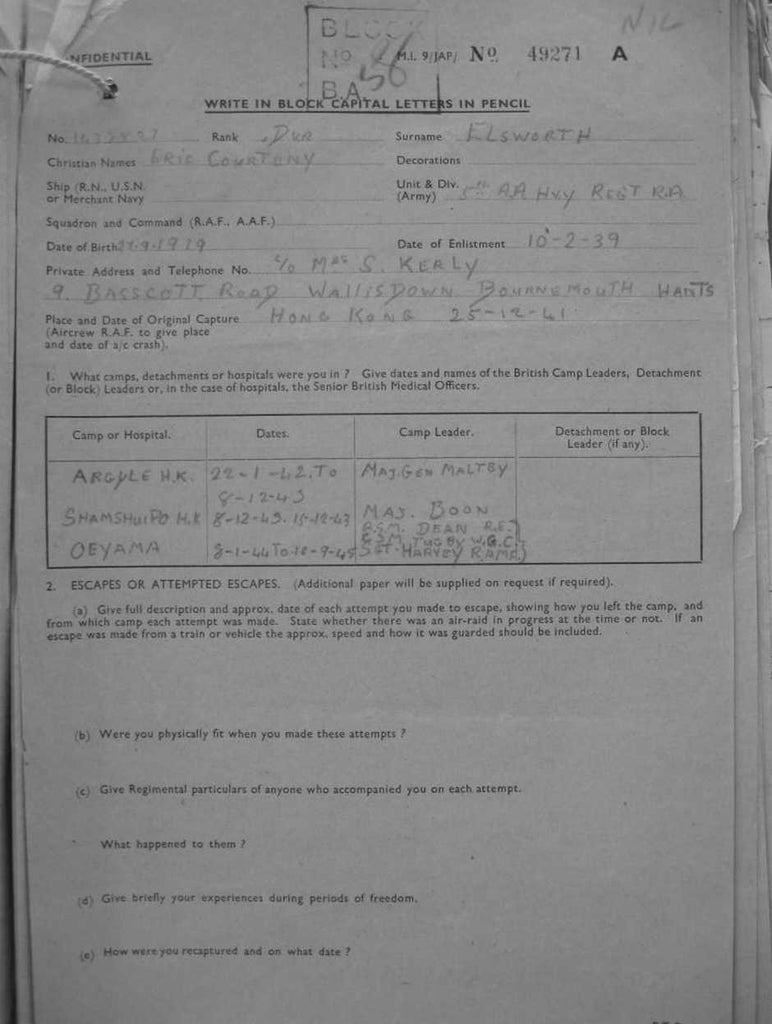 NIL
BLOCK
NFIDENTIAL
NO 56 M.I. 9/JAP/ No. 49271 A
B.A.
WRITE IN BLOCK CAPITAL LETTERS IN PENCIL
No. Rank DVR Surname ELSWORTH
Christian Names ERIC COURTENY Decorations
Ship (R.N., U.S.N. Unit & Div. 5TH AA HVY REGT R.A.
or Merchant Navy (Army)
Squadron and Command (R.A.F., A.A.F.)
Date of Birth 27-9-1919 Date of Enlistment 10-2-39
Private Address and Telephone No. C/O MRS S. KERLY
9. BASSCOTT ROAD WALLISDOWN BOURNEMOUTH HANTS
Place and Date of Original Capture HONG KONG 25-12-41.
(Aircrew R.A.F. to give place
and date of a/c crash).
1. What camps, detachments or hospitals were you in ? Give dates and names of the British Camp Leaders, Detachment
(or Block) Leaders or, in the case of hospitals, the Senior British Medical Officers.
Camp or Hospital. Dates. Camp Leader. Detachment or Block
Leader (if any).
ARGYLE H.K. 22-1-42. TO MAJ. GEN MALTBY
8-12-43
SHAMSHUIPO H.K 8-12-43. 15-12-43 MAJ. BOON
R.S.M. DEAN R.E.
OEYAMA 8-1-44 TO 10-9-45 SGT. HARVEY R.A.M.C.
2. ESCAPES OR ATTEMPTED ESCAPES. (Additional paper will be supplied on request if required).
(a) Give full description and approx. date of each attempt you made to escape, showing how you left the camp, and
from which camp each attempt was made. State whether there was an air-raid in progress at the time or not. If an
escape was made from a train or vehicle the approx. speed and how it was guarded should be included.
(b) Were you physically fit when you made these attempts ?
(c) Give Regimental particulars of anyone who accompanied you on each attempt.
What happened to them ?
(d) Give briefly your experiences during periods of freedom.
(e) How were you recaptured and on what date ?